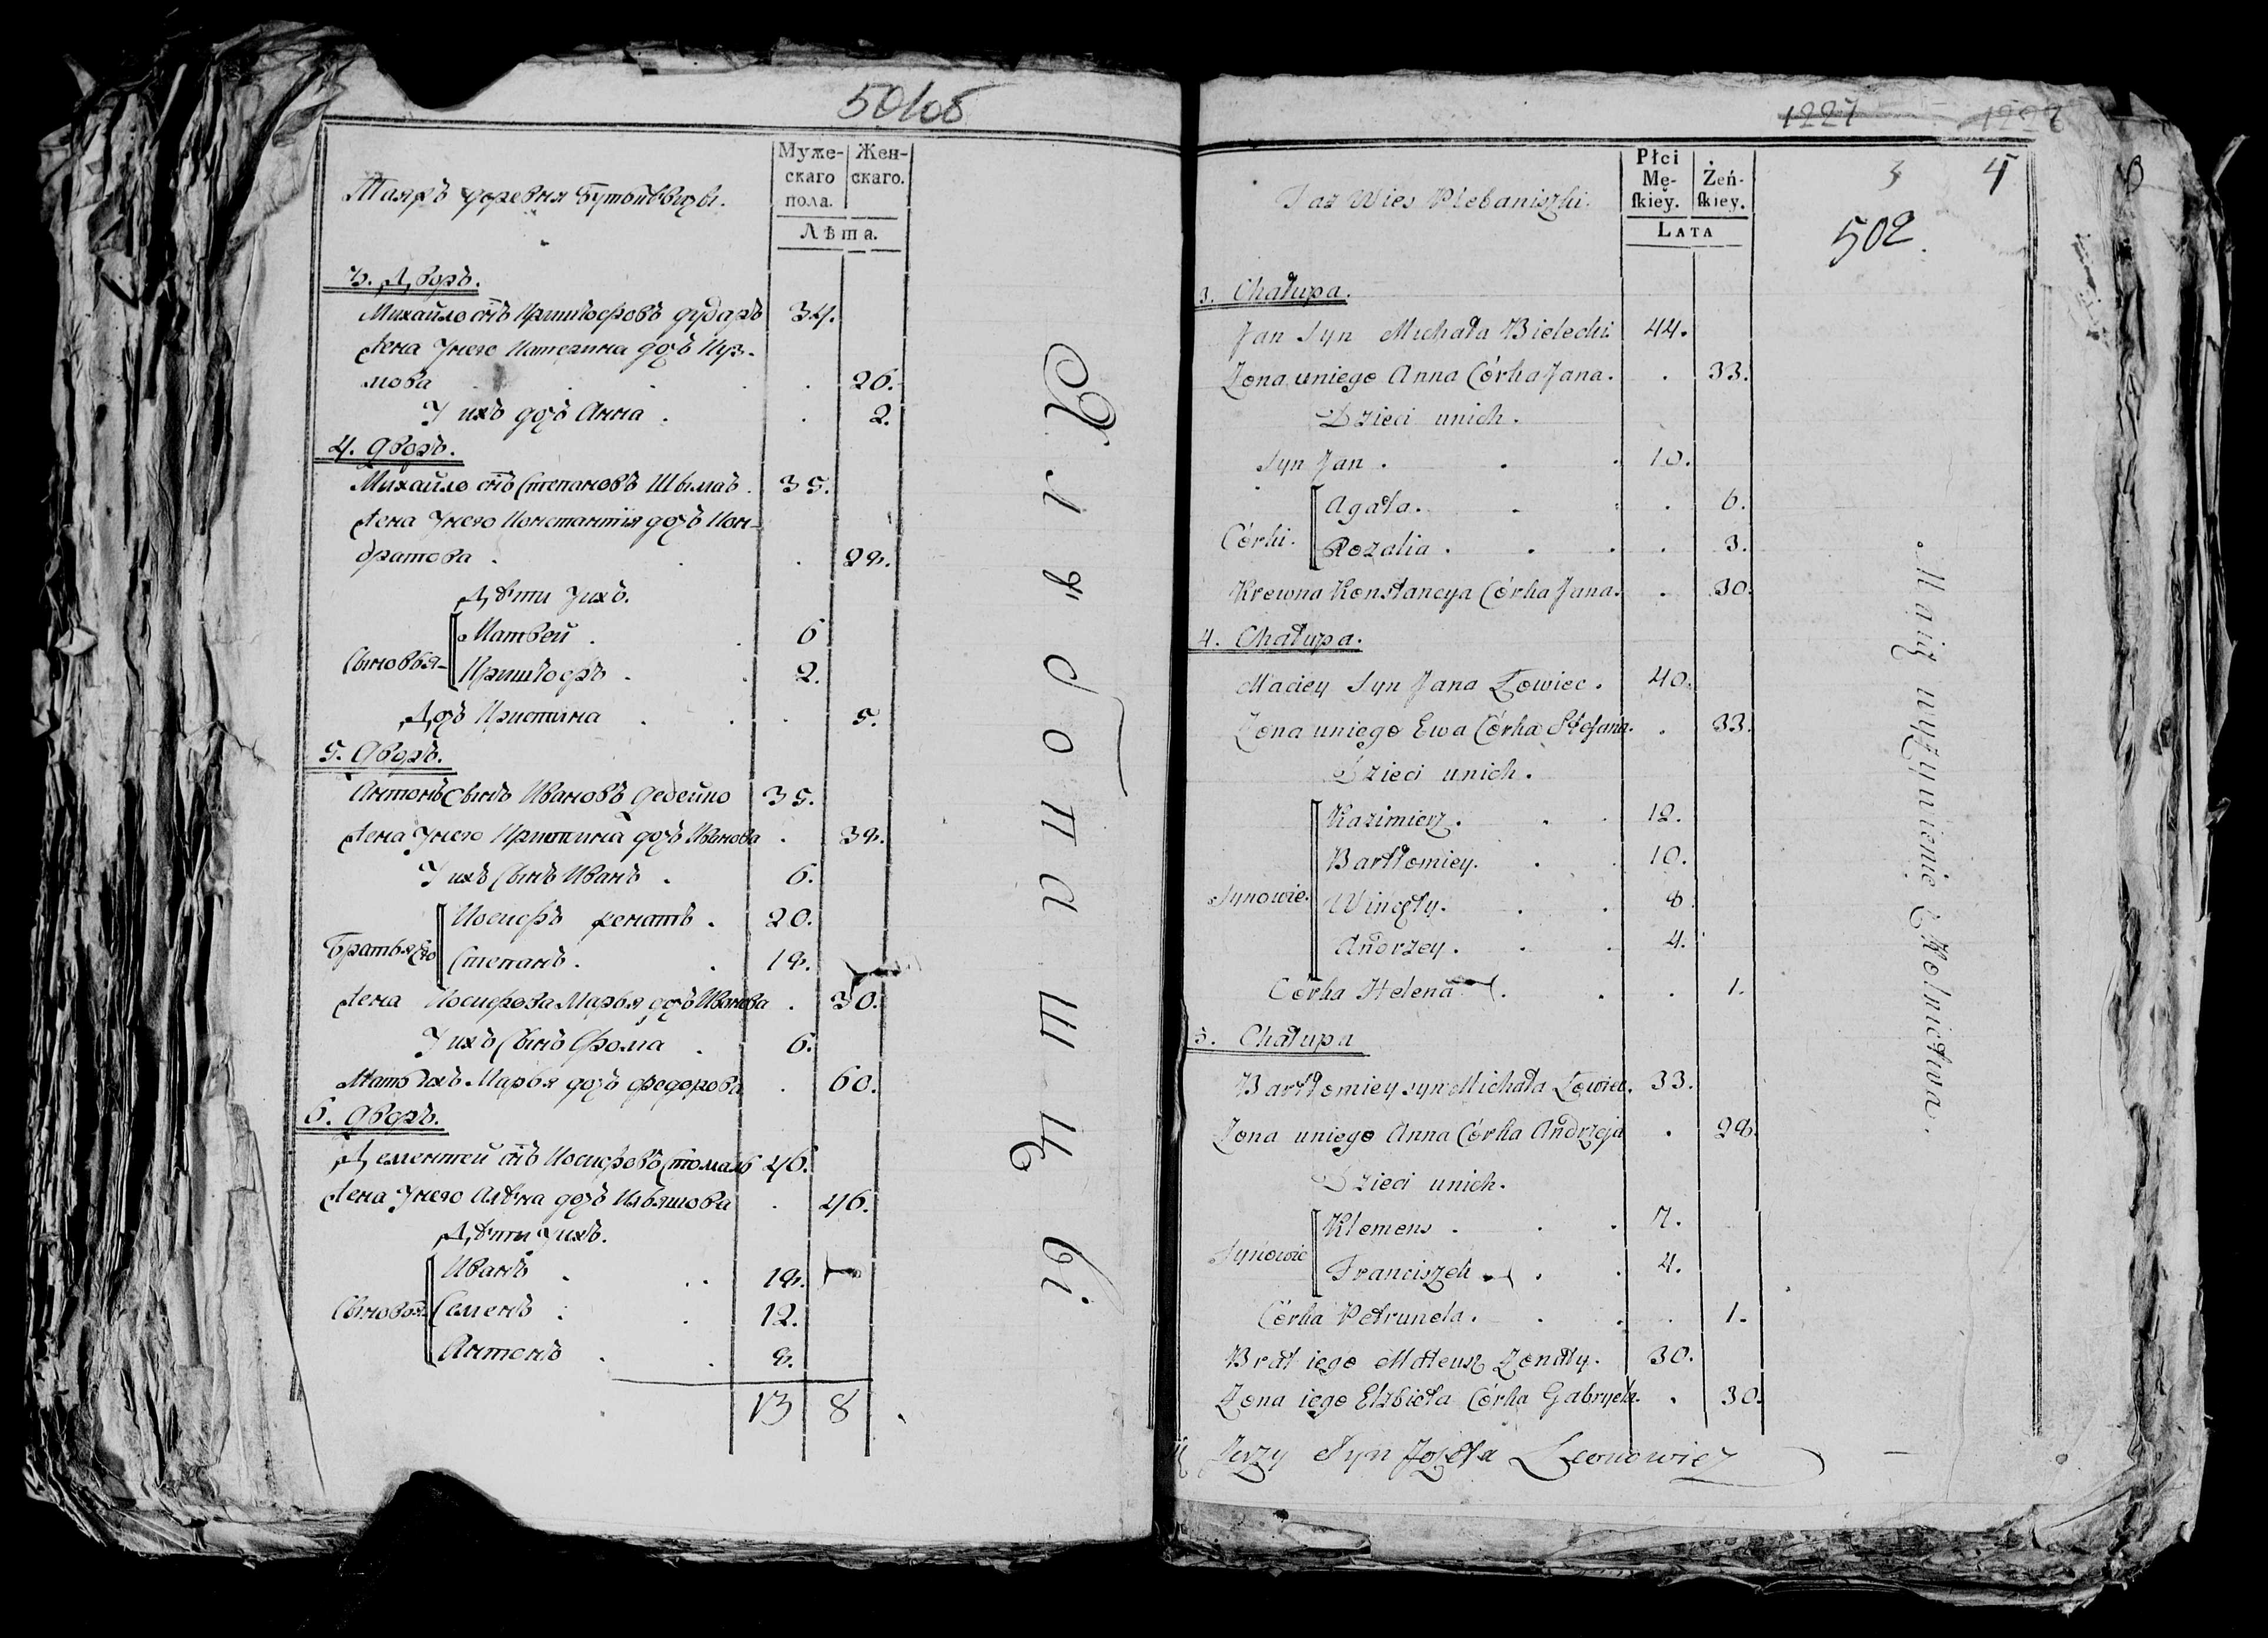 501об
Таяжъ деревня Бутывввцы.
Муже-
скаго
пола.
Жен-
скаго.
Лѣта.
3. Дворъ.
Михайло снъ Криштофовъ дударъ 34.
Жена Унего Катерина дочъ Куз-
мова . . . . 26.
У ихъ дочъ Анна . . 2.
4. Дворъ.
Михайло снъ Степановъ Шымаъ . 35.
Жена Унего Константія дочъ Кон-
дратова . . . 28.
Дѣти Уихъ.
Сыновья Матвей . . 6
Криштофъ . . 2.
Дочъ Кристина . . . 5.
5. Дворъ.
Антонъ Сынъ Ивановъ Дедейко 35.
Жена Унего Кристина дочъ Иванова . 38.
У ихъ Сынъ Иванъ . 6.
Братья Его Иосифъ женатъ . 20.
Степанъ . . 18.
Жена Иосифова Марья дочъ Иванова . 30.
У ихъ Сынъ Фома . 6.
Мать ихъ Марья дочъ Федорова . 60.
6. Дворъ.
Дементей снъ Иосифовъ 46.
Жена Унего Алѣна дочъ Ильяшова . 46.
Дѣти Уихъ.
Сыновья Иванъ . . . 18.
Семенъ . . 12.
Антонъ . . 8.
13 8
О г л ъ д о п а ш ц ы
1227 1228
Taz Wies Plebaniszki.
Płci
Mę-
ſkiey.
Żeń-
ſkiey.
LATA
3 4
502.
3. Chałupa.
Jan Syn Michała Bielecki 44.
Zona uniego Anna Córka Jana. . 33.
Dzieci unich.
Syn Jan . . . 10.
Córki. Agata. . . . 6.
Rozalia . . . . 3.
Krewna Konstancya Córka Jana. . 30.
4. Chałupa.
Maciey Syn Jana Łowiec. 40.
Zona uniego Ewa Córka Stefana. . 33.
Dzieci unich.
Synowie. Kazimierz. . . 12.
Bartłomiey. . . 10.
Wincęty. . . 8.
Andrzey. . . 4.
Córka Helena . . . 1.
5. Chałupa
Bartłomiey syn Michała Łowiec. 33.
Zona uniego Anna Córka Andrzeja . 28.
Dzieci unich.
Synowie Klemens . . . 7.
Franciszek . . 4.
Córka Petrunela. . . . 1.
Brat iego Mateusz Zonaty. 30.
Zona iego Elzbieta Córka Gabryela. . 30.
Jerzy Syn Jozefa Leonowicz